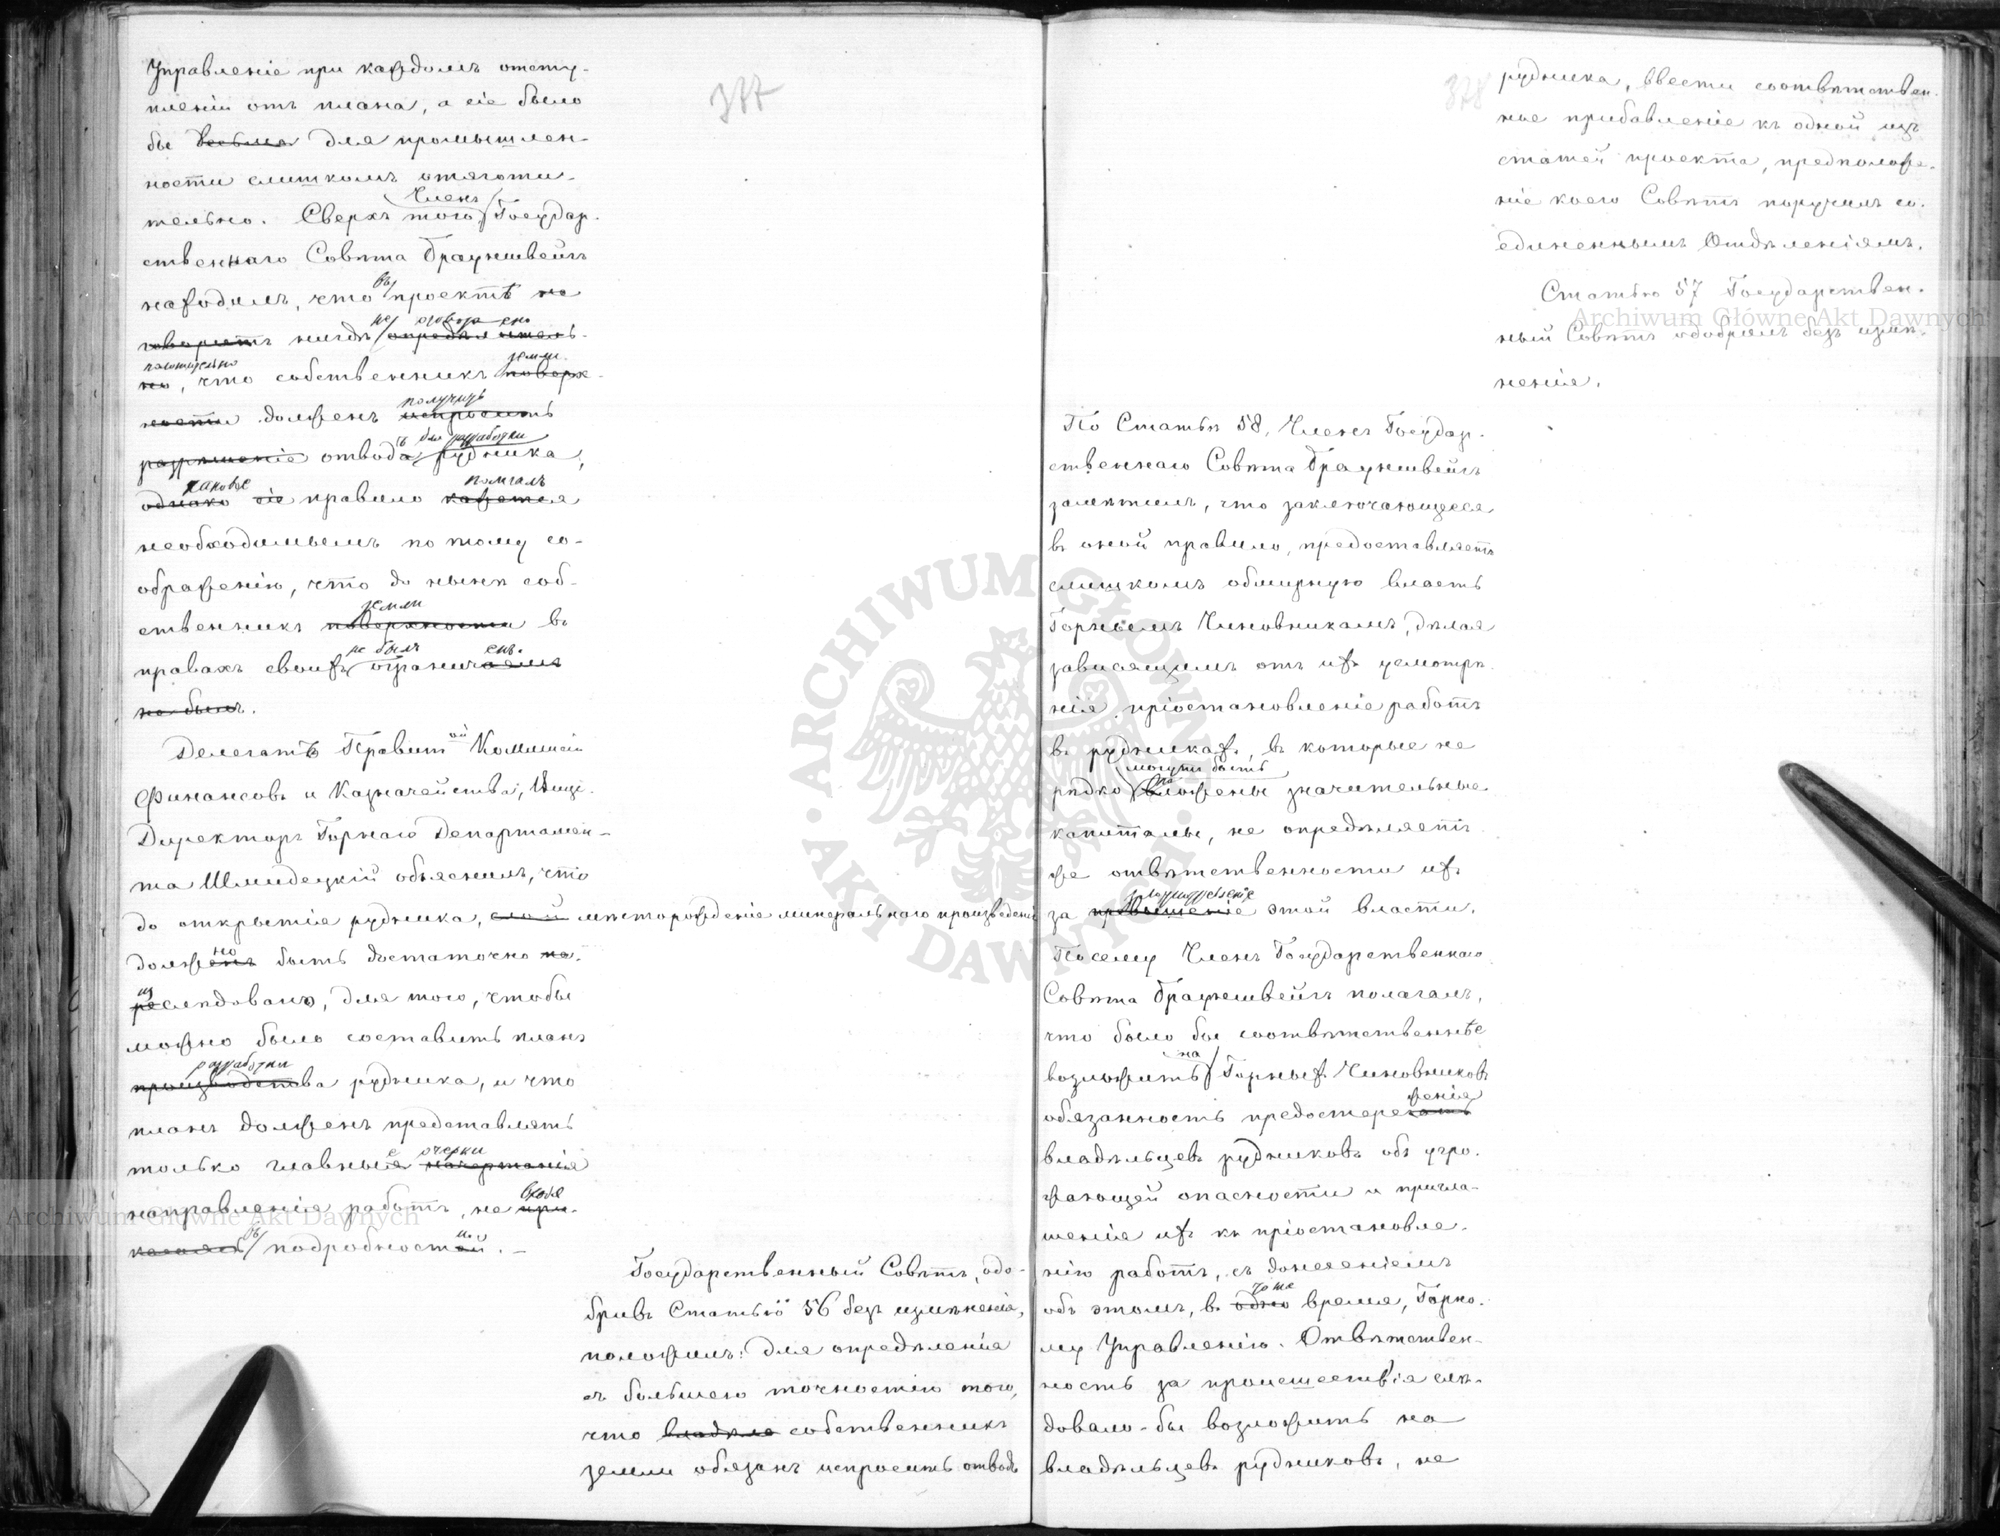 377
Управленіе при каждомъ отсту-
пленіи отъ плана, а сіе было
бы весьма для промышлен-
ности слишкомъ отяготи-
тельно. Сверхъ того Членъ Государ-
ственнаго Совѣта Брауншвейгъ
находилъ, что въ проектѣ не
говоритъ нигдѣ не оговорено опредѣлитель-
но положительно, что собственникъ земли поверх-
ности долженъ получить испросить
разрѣшеніе отводъ для разработки рудника,
однако сіе каковое правило полагалъ кажется
необходимымъ по тому со-
ображенію, что до нынѣ соб-
ственникъ земли поверхности въ
правахъ своихъ не былъ ограниченъ
не былъ.
Делегатъ Правит ой Коммисіи
Финансовъ и Казначейства, Вице-
Директоръ Горнаго Департамен-
та Шмидецкій объяснилъ, что
до открытія рудника, слой мѣсторожденіе минеральнаго произведенія
должно быть достаточно на-
изслѣдовано, для того, чтобы
можно было составить планъ
разработки производства рудника, и что
планъ долженъ представлять
только главные очерки начертанія
направленія работъ, не входя при-
касаясь въ подробности. —
Государственный Совѣтъ, одо-
бривъ Статью 56 безъ измѣненія,
положилъ: для опредѣленія
съ большею точностію того,
что владѣле собственникъ
земли обязанъ испросить отводъ
378
рудника, ввести соотвѣтствен-
ное прибавленіе къ одной изъ
статей проекта, предположе-
ніе коего Совѣтъ поручилъ со-
единеннымъ Отдѣленіямъ.
Статью 57 Государствен-
ный Совѣтъ одобрилъ безъ измѣ-
ненія.
По Статьѣ 58, Членъ Государ-
ственнаго Совѣта Брауншвейгъ
замѣтилъ, что заключающееся
въ оной правило, предоставляетъ
слишкомъ обширную власть
Горнымъ Чиновникамъ, дѣлая
зависящимъ отъ ихъ усмотрѣ-
нія пріостановленіе работъ
въ рудникахъ, въ которые не
рѣдко могутъ быть вложены значительные
капиталы, не опредѣляетъ
же отвѣтственности ихъ
за злоупотребленіе превышеніе этой власти.
Посему Членъ Государственнаго
Совѣта Брауншвейгъ полагалъ,
что было бы соотвѣтственнѣе
возложить на Горныхъ Чиновниковъ
обязанность предостереженія
владѣльцевъ рудниковъ объ угро-
жающей опасности и пригла-
шенія ихъ къ пріостановле-
нію работъ, съ донесеніемъ
объ этомъ, въ тоже одно время, Горно-
му Управленію. Отвѣтствен-
ность за происшествія слѣ-
довало-бы возложить на
владѣльцевъ рудниковъ, не
Archiwum Główne Akt Dawnych
Archiwum Główne Akt Dawnych
ARCHIWUM GŁÓWNE · AKT DAWNYCH ·